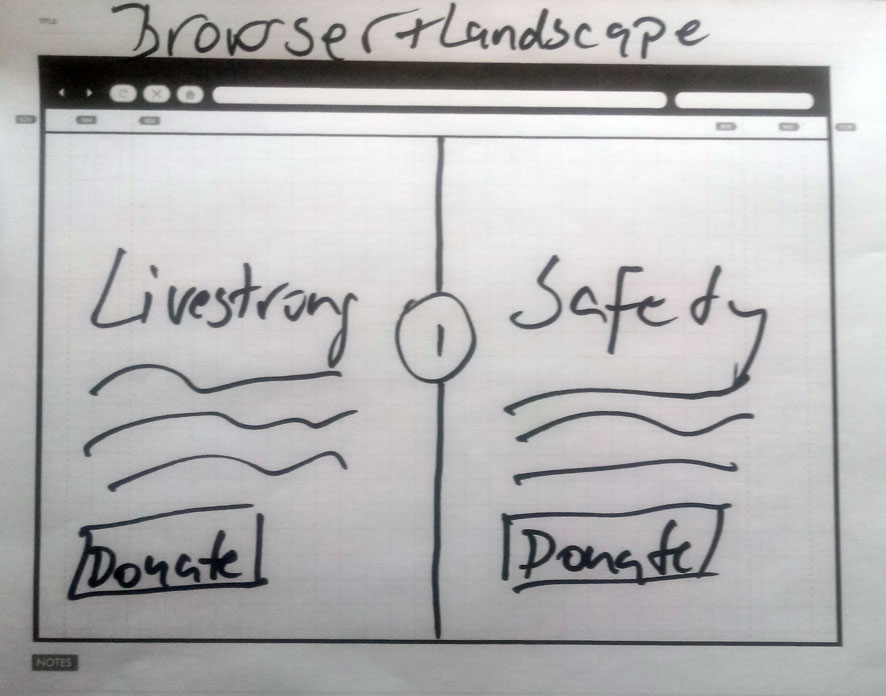 TITLE
Browser+Landscape
Livestrong
Safety
1
Donate
Donate
NOTES